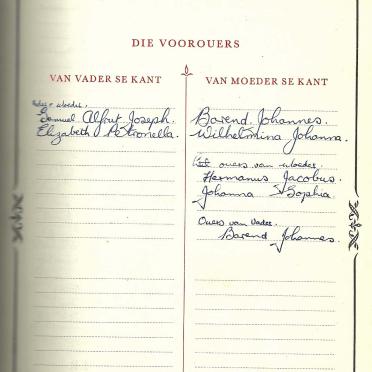 DIE VOOROUERS
VAN VADER SE KANT
Vader + moeder.
Samuel Alfrut Joseph.
Elizabeth Petronella.
VAN MOEDER SE KANT
Barend Johannes.
Wilhelmina Johanna.
ouers van moeder.
Hermanus Jacobus.
Johanna Sophia
Ouers van Vader.
Barend Johannes.